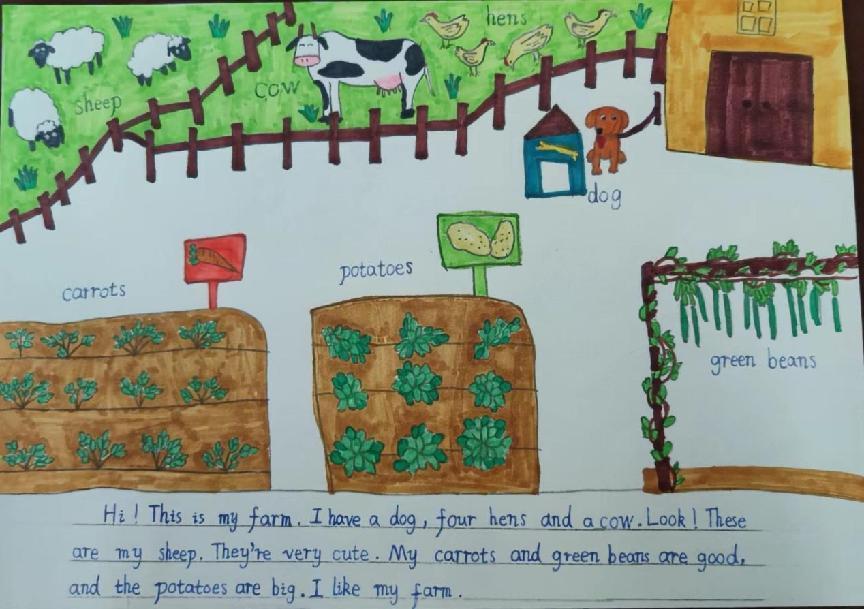 hens
cow
sheep
dog
potatoes
carrots
green beans
Hi! This is my farm. I have a dog, four hens and a cow. Look! These
are my sheep. They're very cute. My carrots and green beans are good,
and the potatoes are big. I like my farm.